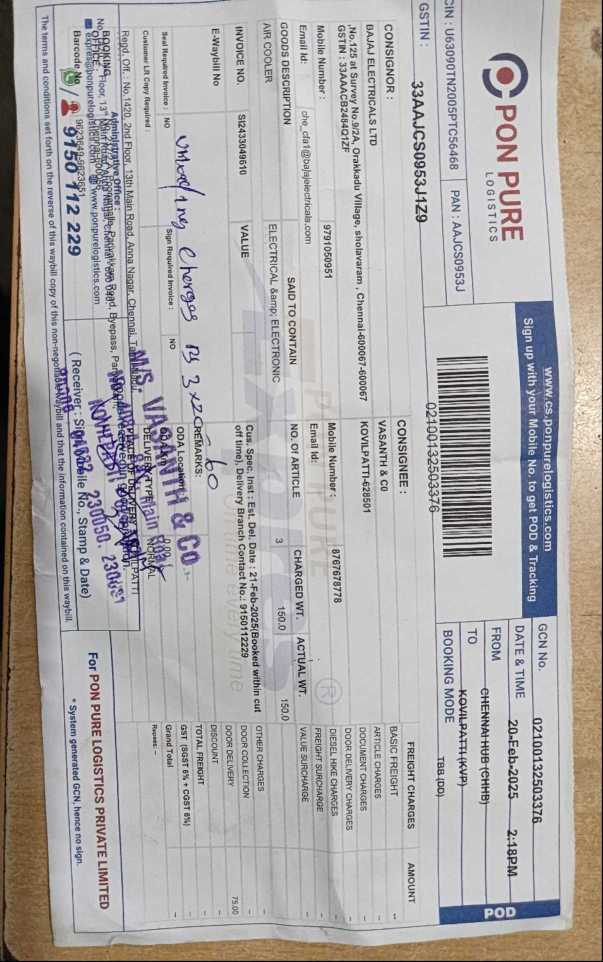 PON PURE
LOGISTICS
www.cs.ponpurelogistics.com
Sign up with your Mobile No. to get POD & Tracking
POD
CIN : U63090TN2005PTC56468 PAN : AAJCS0953J
GSTIN : 33AAJCS0953J1Z9
02100132503376
GCN No. 02100132503376
DATE & TIME 20-Feb-2025 2:18PM
FROM CHENNAI HUB (CHHB)
TO KOVILPATTI (KVP)
BOOKING MODE TBB (DD)
CONSIGNOR :
BAJAJ ELECTRICALS LTD
,No.125 at Survey No.9/2A, Orakkadu Village, sholavaram , Chennai-600067-600067
GSTIN : 33AAACB2484Q1ZF
Mobile Number : 9791050951
Email Id: che_cfa1@bajajelectricals.com
CONSIGNEE :
VASANTH & CO
KOVILPATTI-628501
Mobile Number : 8767678778
Email Id:
GOODS DESCRIPTION SAID TO CONTAIN NO. OF ARTICLE CHARGED WT. ACTUAL WT.
AIR COOLER ELECTRICAL &amp; ELECTRONIC 3 150.0 150.0
INVOICE NO. SI2433049610 VALUE
Cus. Spec. Inst : Est. Del. Date : 21-Feb-2025(Booked within cut
off time), Delivery Branch Contact No.: 9150112229
E-Waybill No
REMARKS:
Seal Required Invoice : NO Sign Required Invoice : NO
Customer LR Copy Required :
unloading Charges Rs 3x20=60
ODA Location
DELIVERY TYPE NORMAL
FREIGHT CHARGES AMOUNT
BASIC FREIGHT --
ARTICLE CHARGES
DOCUMENT CHARGES
DOOR DELIVERY CHARGES
DIESEL HIKE CHARGES
FREIGHT SURCHARGE
VALUE SURCHARGE
OTHER CHARGES
DOOR COLLECTION
DOOR DELIVERY 75.00
DISCOUNT
TOTAL FREIGHT
GST (SGST 6% + CGST 6%)
Grand Total
Rupees: --
Regd. Off. : No.1420, 2nd Floor, 13th Main Road, Anna Nagar, Chennai,
Administrative Office :
BOOKING
OFFICE
www.ponpurelogistics.com
Barcode No
9150 112 229
M/S. VASANTH & CO
Main Road
230050, 230081
( Receiver : Sign, Mobile No., Stamp & Date)
For PON PURE LOGISTICS PRIVATE LIMITED
* System generated GCN, hence no sign.
The terms and conditions set forth on the reverse of this waybill copy of this non-negotiable waybill and that the information contained on this waybill.